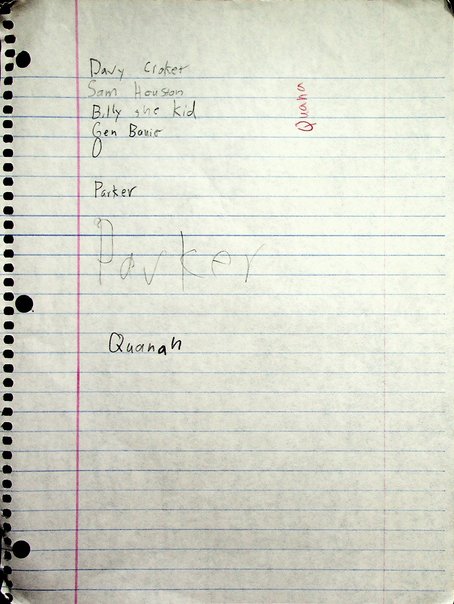 Davy Croket
Sam Houston
Billy the Kid
Gen Bowie
Quana
Parker
Parker
Quanah